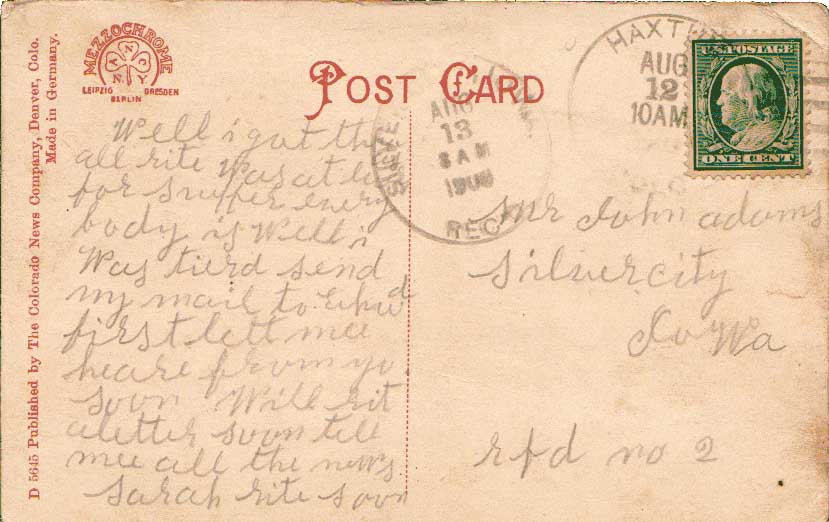 D 5645 Published by The Colorado News Company, Denver, Colo.
Made in Germany.
MEZZOCHROME
A N C
N Y
LEIPZIG DRESDEN
BERLIN
POST CARD
AUG
13
8 AM
REC
HAXTU
AUG
12
10AM
U.S. POSTAGE
ONE CENT
Well i got
all rite Was at
for supper every
body is Well i
Was tierd send
my mail to
first lett mee
heare from yo
soon Will rit
a letter soon tell
mee all the news
sarah rite soon
Mr John adams
silver city
Iowa
rfd no 2